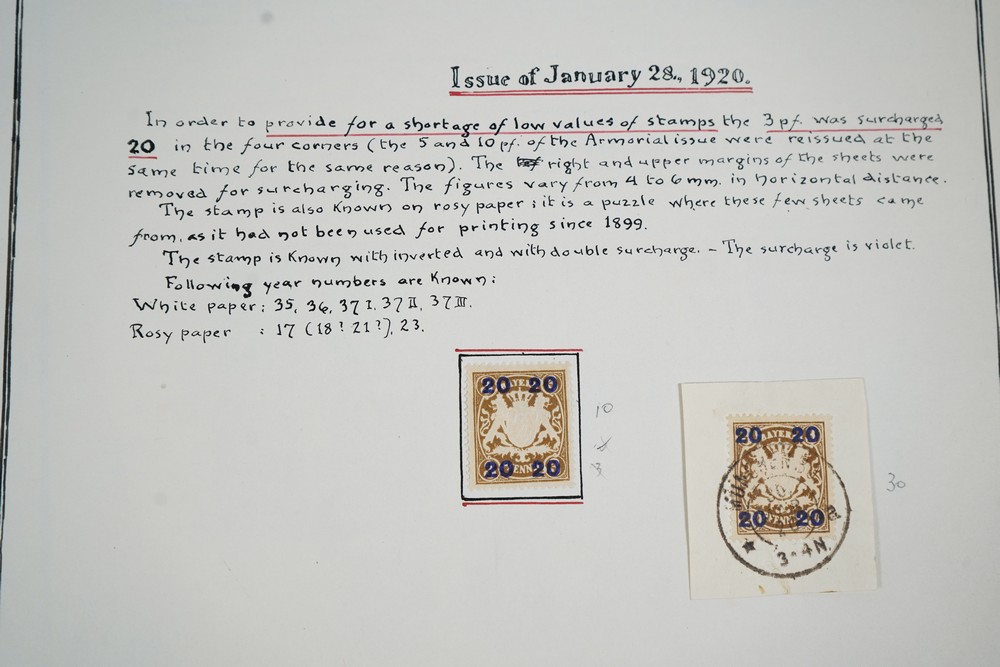 Issue of January 28., 1920.
In order to provide for a shortage of low values of stamps the 3 pf. was surcharged
20 in the four corners (the 5 and 10 pf. of the Armorial issue were reissued at the
same time for the same reason). The right and upper margins of the sheets were
removed for surcharging. The figures vary from 4 to 6 mm. in horizontal distance.
The stamp is also known on rosy paper; it is a puzzle where these few sheets came
from, as it had not been used for printing since 1899.
The stamp is known with inverted and with double surcharge. – The surcharge is violet.
Following year numbers are known:
White paper: 35, 36, 37 I, 37 II, 37 III.
Rosy paper : 17 (18? 21?), 23.
20 20
BAYERN
20 20
PFENNIG
10
20 20
BAYERN
MÜNCHEN
20 20
PFENNIG
3-4N.
30